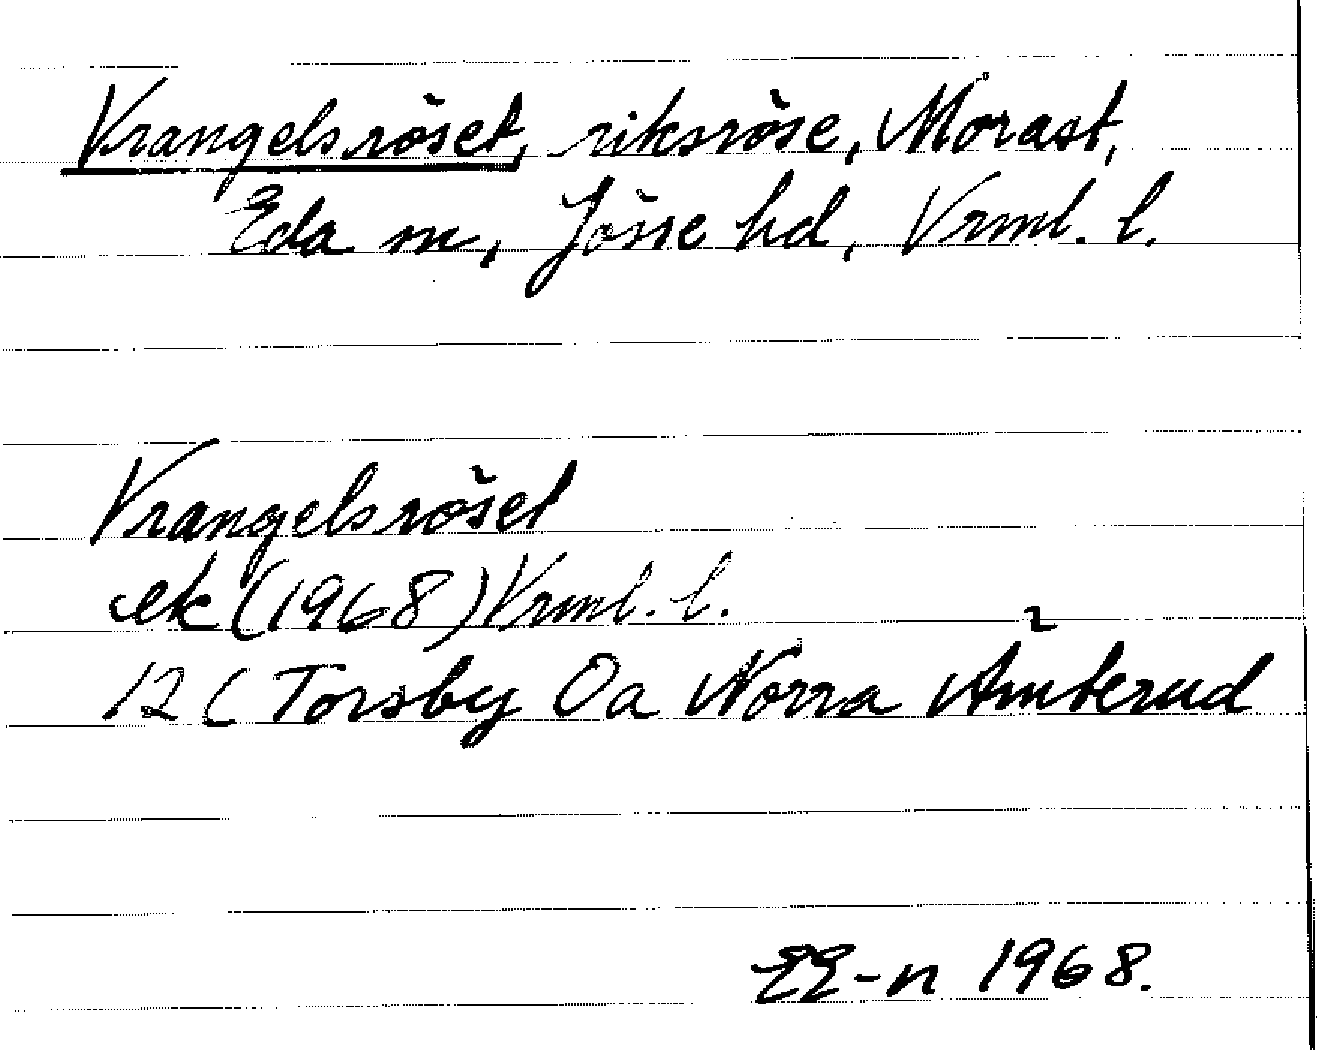 Vrangelsröset, riksröse, Morast,
Eda sn, Jösse hd, Vrml. l.
Vrangelsröset
ek (1968) Vrml. l.
12 C Torsby Oa Norra Åmterud
EE-n 1968.